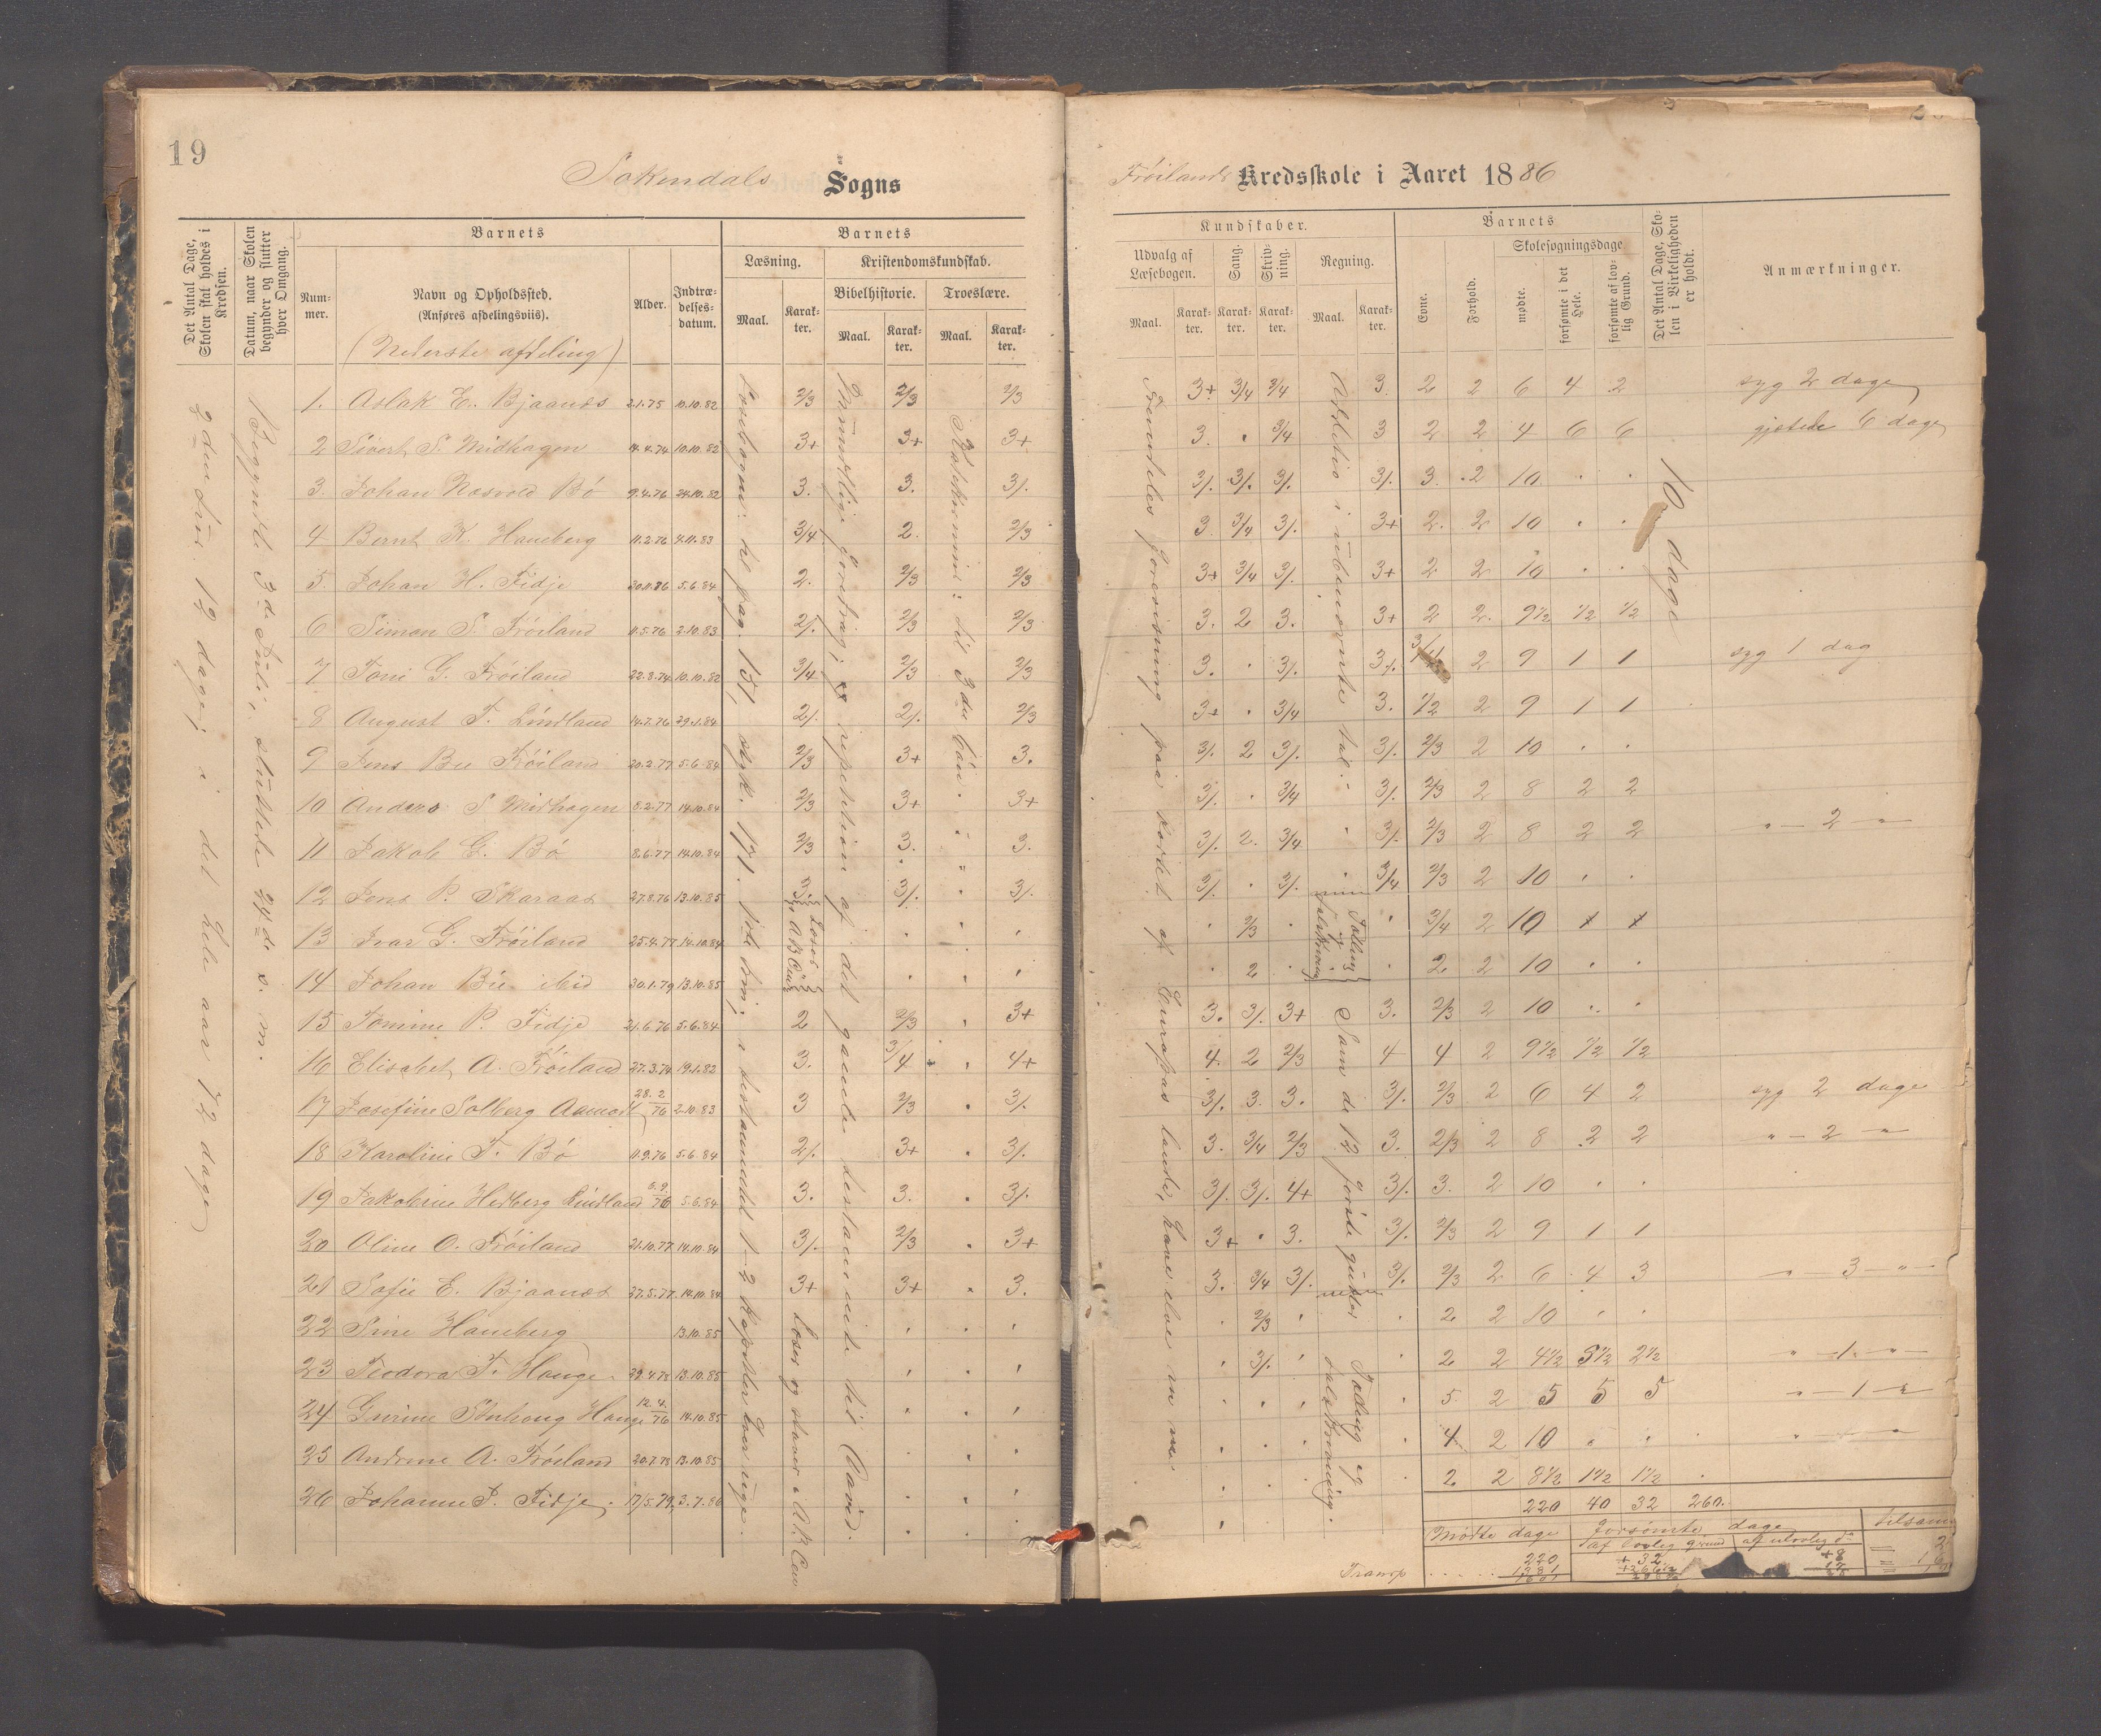 19
Sokendals Sogns
Det Antal Dage, Skolen skal holdes i Kredsen.
Datum, naar Skolen begynder og slutter hver Omgang.
Barnets
Barnets
Num-mer.
Navn og Opholdssted.
(Anføres afdelingsviis).
(Nederste afdeling)
Alder.
Indtræ-delses-datum.
Læsning.
Kristendomskundskab.
Bibelhistorie.
Troeslære.
Maal.
Karak-ter.
Maal.
Karak-ter.
Maal.
Karak-ter.
1. Aslak E. Bjaanes 2.1.75 10.10.82 2/3 2/3 2/3
2 Sivert S. Midhagen 14.4.74 10.10.82 3+ 3+ 3+
3. Johan Næsvold Bø 9.4.76 24.10.82 3. 3. 3/.
4 Bernt K. Haneberg 11.2.76 4.11.83 3/4 2. 2/3
5. Johan H. Fidje 5.6.84 2. 2/3 2/3
6 Simon S. Frøiland 11.5.76 2.10.83 2/. 2/3 2/3
7 Toni G. Frøiland 22.8.74 10.10.82 3/4 2/3 2/3
8 August T. Lindland 14.7.76 29.1.84 2/. 2/. 2/3
9 Jens Bie Frøiland 20.2.77 5.6.84 2/3 3+ 3.
10 Anders S Midhagen 8.2.77 14.10.84 2/3 3+ 3+
11 Jakob G. Bø 8.6.77 14.10.84 2/3 3. 3.
12 Jens P. Skaraas 27.8.76 13.10.85 3. 3/. 3/.
13 Ivar G. Frøiland 25.4.77 14.10.84
14 Johan Bie ibid 30.1.79 13.10.85
15 Tomine P. Fidje 21.6.76 5.6.84 2 2/3 3+
16 Elisabet A. Frøiland 27.3.74 19.1.82 3. 3/4 4+
17 Josefine Solberg Aamodt 28.2/76 2.10.83 3 2/3 3/.
18 Karoline T. Bø 11.9.76 5.6.84 2/. 3+ 3/.
19 Jakobine Hedberg Lindland 6.9/76 5.6.84 3. 3. 3/.
20 Oline O. Frøiland 21.10.77 14.10.84 3/. 2/3 3+
21 Sofie E. Bjaanes 27.5.77 14.10.84 3+ 3+ 3.
22 Sine Haneberg 13.10.85
23 Teodora T. Hauge 29.4.78 13.10.85
24 Gurine Hauge 12.4/76 14.10.85
25 Andrine A. Frøiland 20.7.78 13.10.85
26 Johanne P. Fidje 17/5.79, 3.7.86
2den 12 dage; i det hele aar 72 dage
Begyndte 3de Juli, sluttede 24de s. m.
Læsebogen: til pag. 131, styk. 121.
Mundtlige foredrag; og repetition af det gamle testamente til David.
Katekismen: til 3die bøn.
Læser og staver i A B Cen
Frøilands Kredsskole i Aaret 1886
Kundskaber.
Barnets
Udvalg af Læsebogen.
Sang.
Skriv-ning.
Regning.
Maal.
Karak-ter.
Karak-ter.
Karak-ter.
Maal.
Karak-ter.
Evne.
Forhold.
Skolesøgningsdage
mødte.
forsømte i det Hele.
forsømte af lov-lig Grund.
Det Antal Dage, Sko-len i Virkeligheden er holdt.
Anmærkninger.
3+ 3/4 3/4 3. 2 2 6 4 2 syg 2 dage
3. 3/4 3 2 2 4 6 6 gjætede 6 dage
3/. 3/. 3/. 3/. 3. 2 10
3 3/4 3/. 3+ 2. 2 10
3+ 3/4 3/. 3+ 2 2 10
3. 2 3. 3+ 2 2. 9 1/2 1/2 1/2
3. 3/. 3/. 2 9 1 1 syg 1 dag
3+ 3/4 3. 1/2 2 9 1 1
3/. 2 3/. 3/. 2/3 2 10
3/. 3/4 3/. 2/3 2 8 2 2
3/. 2. 3/4 3/. 2/3 2 8 2 2 " — 2 — "
3/. 3/. 3/4 2/3 2 10
2/3 3/4 2 10
2 2 2 10
3. 3/. 3+ 3. 2/3 2 10
4. 2 2/3 4 4 2 9 1/2 1/2 1/2
3/. 3. 3. 3/. 2/3 2 6 4 2 syg 2 dage
3. 3/4 2/3 3. 2/3 2 8 2 2 " — 2 — "
3/. 3/. 4+ 3/. 3. 2 10
3+ 3. 3/. 2/3 2 9 1 1
3. 3/4 3/. 3/. 2/3 2 6 4 3 " — 3 — "
2/3 2 2 10
3/. 2 2 4 1/2 5 1/2 2 1/2 " — 1 — "
5. 2 5 5 5 " — 1 — "
4 2 10
2 2 8 1/2 1 1/2 1 1/2
220 40 32 260.
10 dage
Fremdeles forevisning paa kortet af Europas lande,
Addition i ubenævnte tal.
Tælling og talskrivning
Som de 12 første gutter
Tælling og talskrivning.
Mødte dage
forsømte dage
af lovlig grund
af ulovlig do
tilsam
220
+ 32
+ 8
Transp